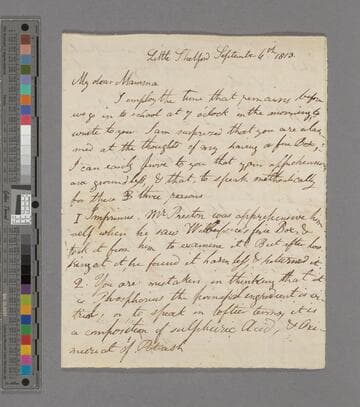 Little Shelford September 6th 1813.
My dear Mamma
I employ the time that remains before
we go in to school at 7 oclock in the morning to
write to you I am surprised that you are alar
med at the thoughts of my having a fire Box,
I can easily prove to you that your apprehensions
are groundless, & that to speak methodically
for these 3 three reasons
I Imprimis. Mr. Preston was apprehensive him
self when he saw Wilberforce's fire Box, &
took it from him to examine it But after loo
king at it he found it harmless & returned it
2. You are mistaken in thinking that it
is Phosphorus the principal ingredient is
or to speak in loftier terms, it is
a composition of sulphuric Acid, & Oxi
muriat of Potash